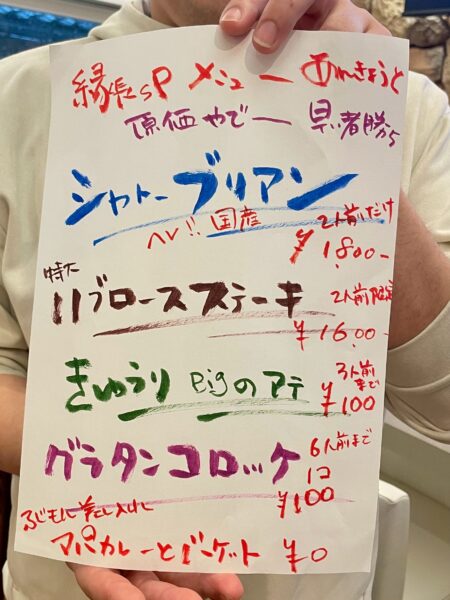 縁長SP メニュー
原価やでー 早者勝ち
シャトーブリアン
ヘレ!! 国産 2人前だけ
¥1,800-
特大
リブロースステーキ 2人前限定
¥1600-
きゅうり Pigのアテ 3人前まで
¥100
グラタンコロッケ 6人前まで
1コ
¥100
差し入れ
カレーとバーゲット ¥0